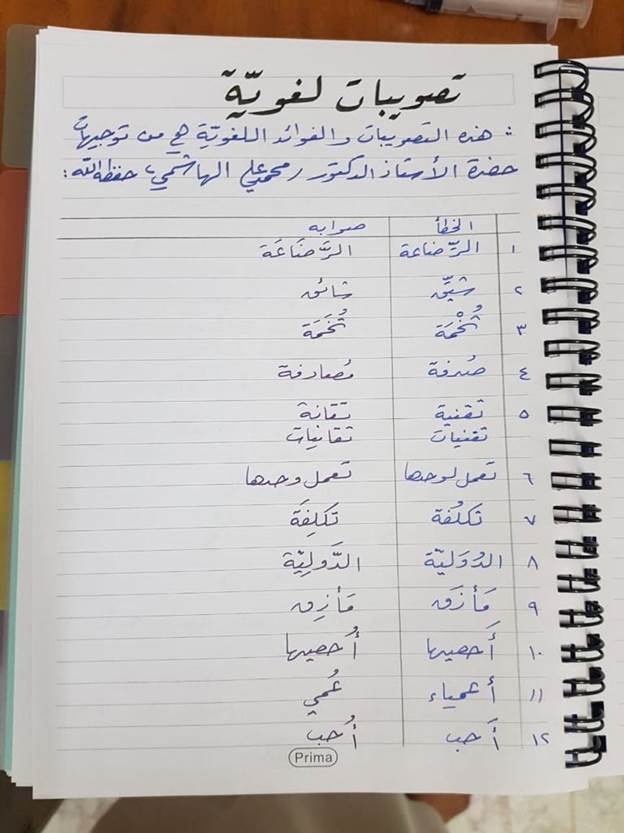 تصويبات لغويّة
: هذه التصويبات والفوائد اللغويّة هي من توجيهات
حضرة الأستاذ الدكتور / محمد علي الهاشمي، حفظه الله :
الخطأ صوابه
١ الرِّضاعة الرَّضَاعَة
٢ شيِّق شائق
٣ تُخْمَة تُخَمَة
٤ صُدفة مُصادفة
٥ تقنية تقانة
تقنيات تقانيات
٦ تعمل لوحدها تعمل وحدها
٧ تكلُفة تكلِفَة
٨ الدُوَليّة الدَّولِيَّة
٩ مَأزَق مَأزِق
١٠ أَحصيها أُحصيها
١١ أعمياء عُمي
١٢ أَحب أُحب
Prima